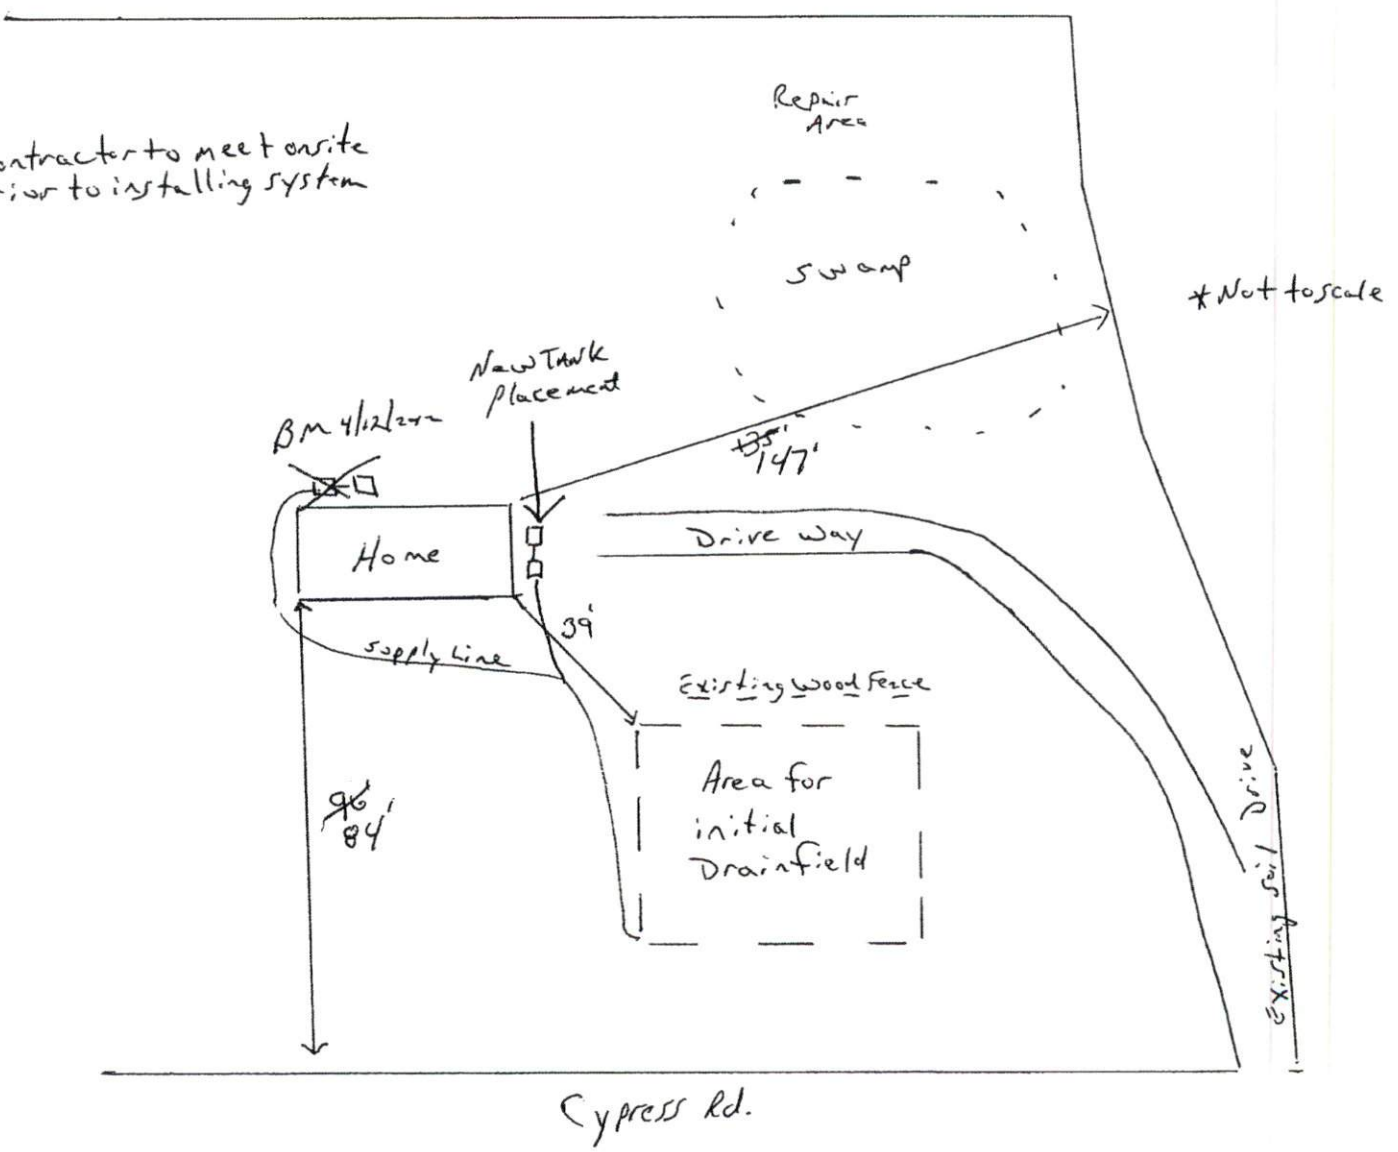 Repair
Area
ontractor to meet onsite
rior to installing system
swamp
*Not to scale
New TANK
Placement
BM 4/12/2022
135'
147'
Drive way
Home
39'
supply Line
Existing Wood Fence
Area for
initial
Drainfield
96'
84'
Existing Soil Drive
Cypress Rd.